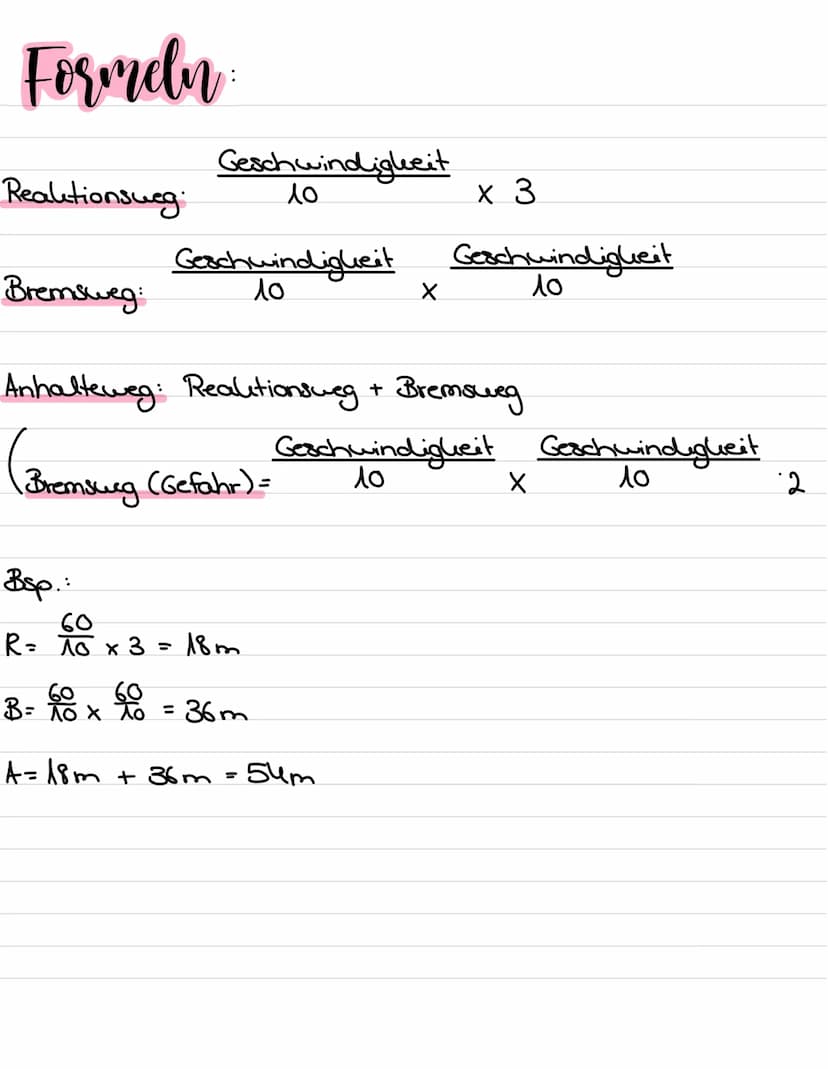 Formeln:
Reaktionsweg: Geschwindigkeit/10 x 3
Bremsweg: Geschwindigkeit/10 x Geschwindigkeit/10
Anhalteweg: Reaktionsweg + Bremsweg
(Bremsweg (Gefahr) = Geschwindigkeit/10 x Geschwindigkeit/10 :2
Bsp.:
R = 60/10 x 3 = 18m
B = 60/10 x 60/10 = 36m
A = 18m + 36m = 54m